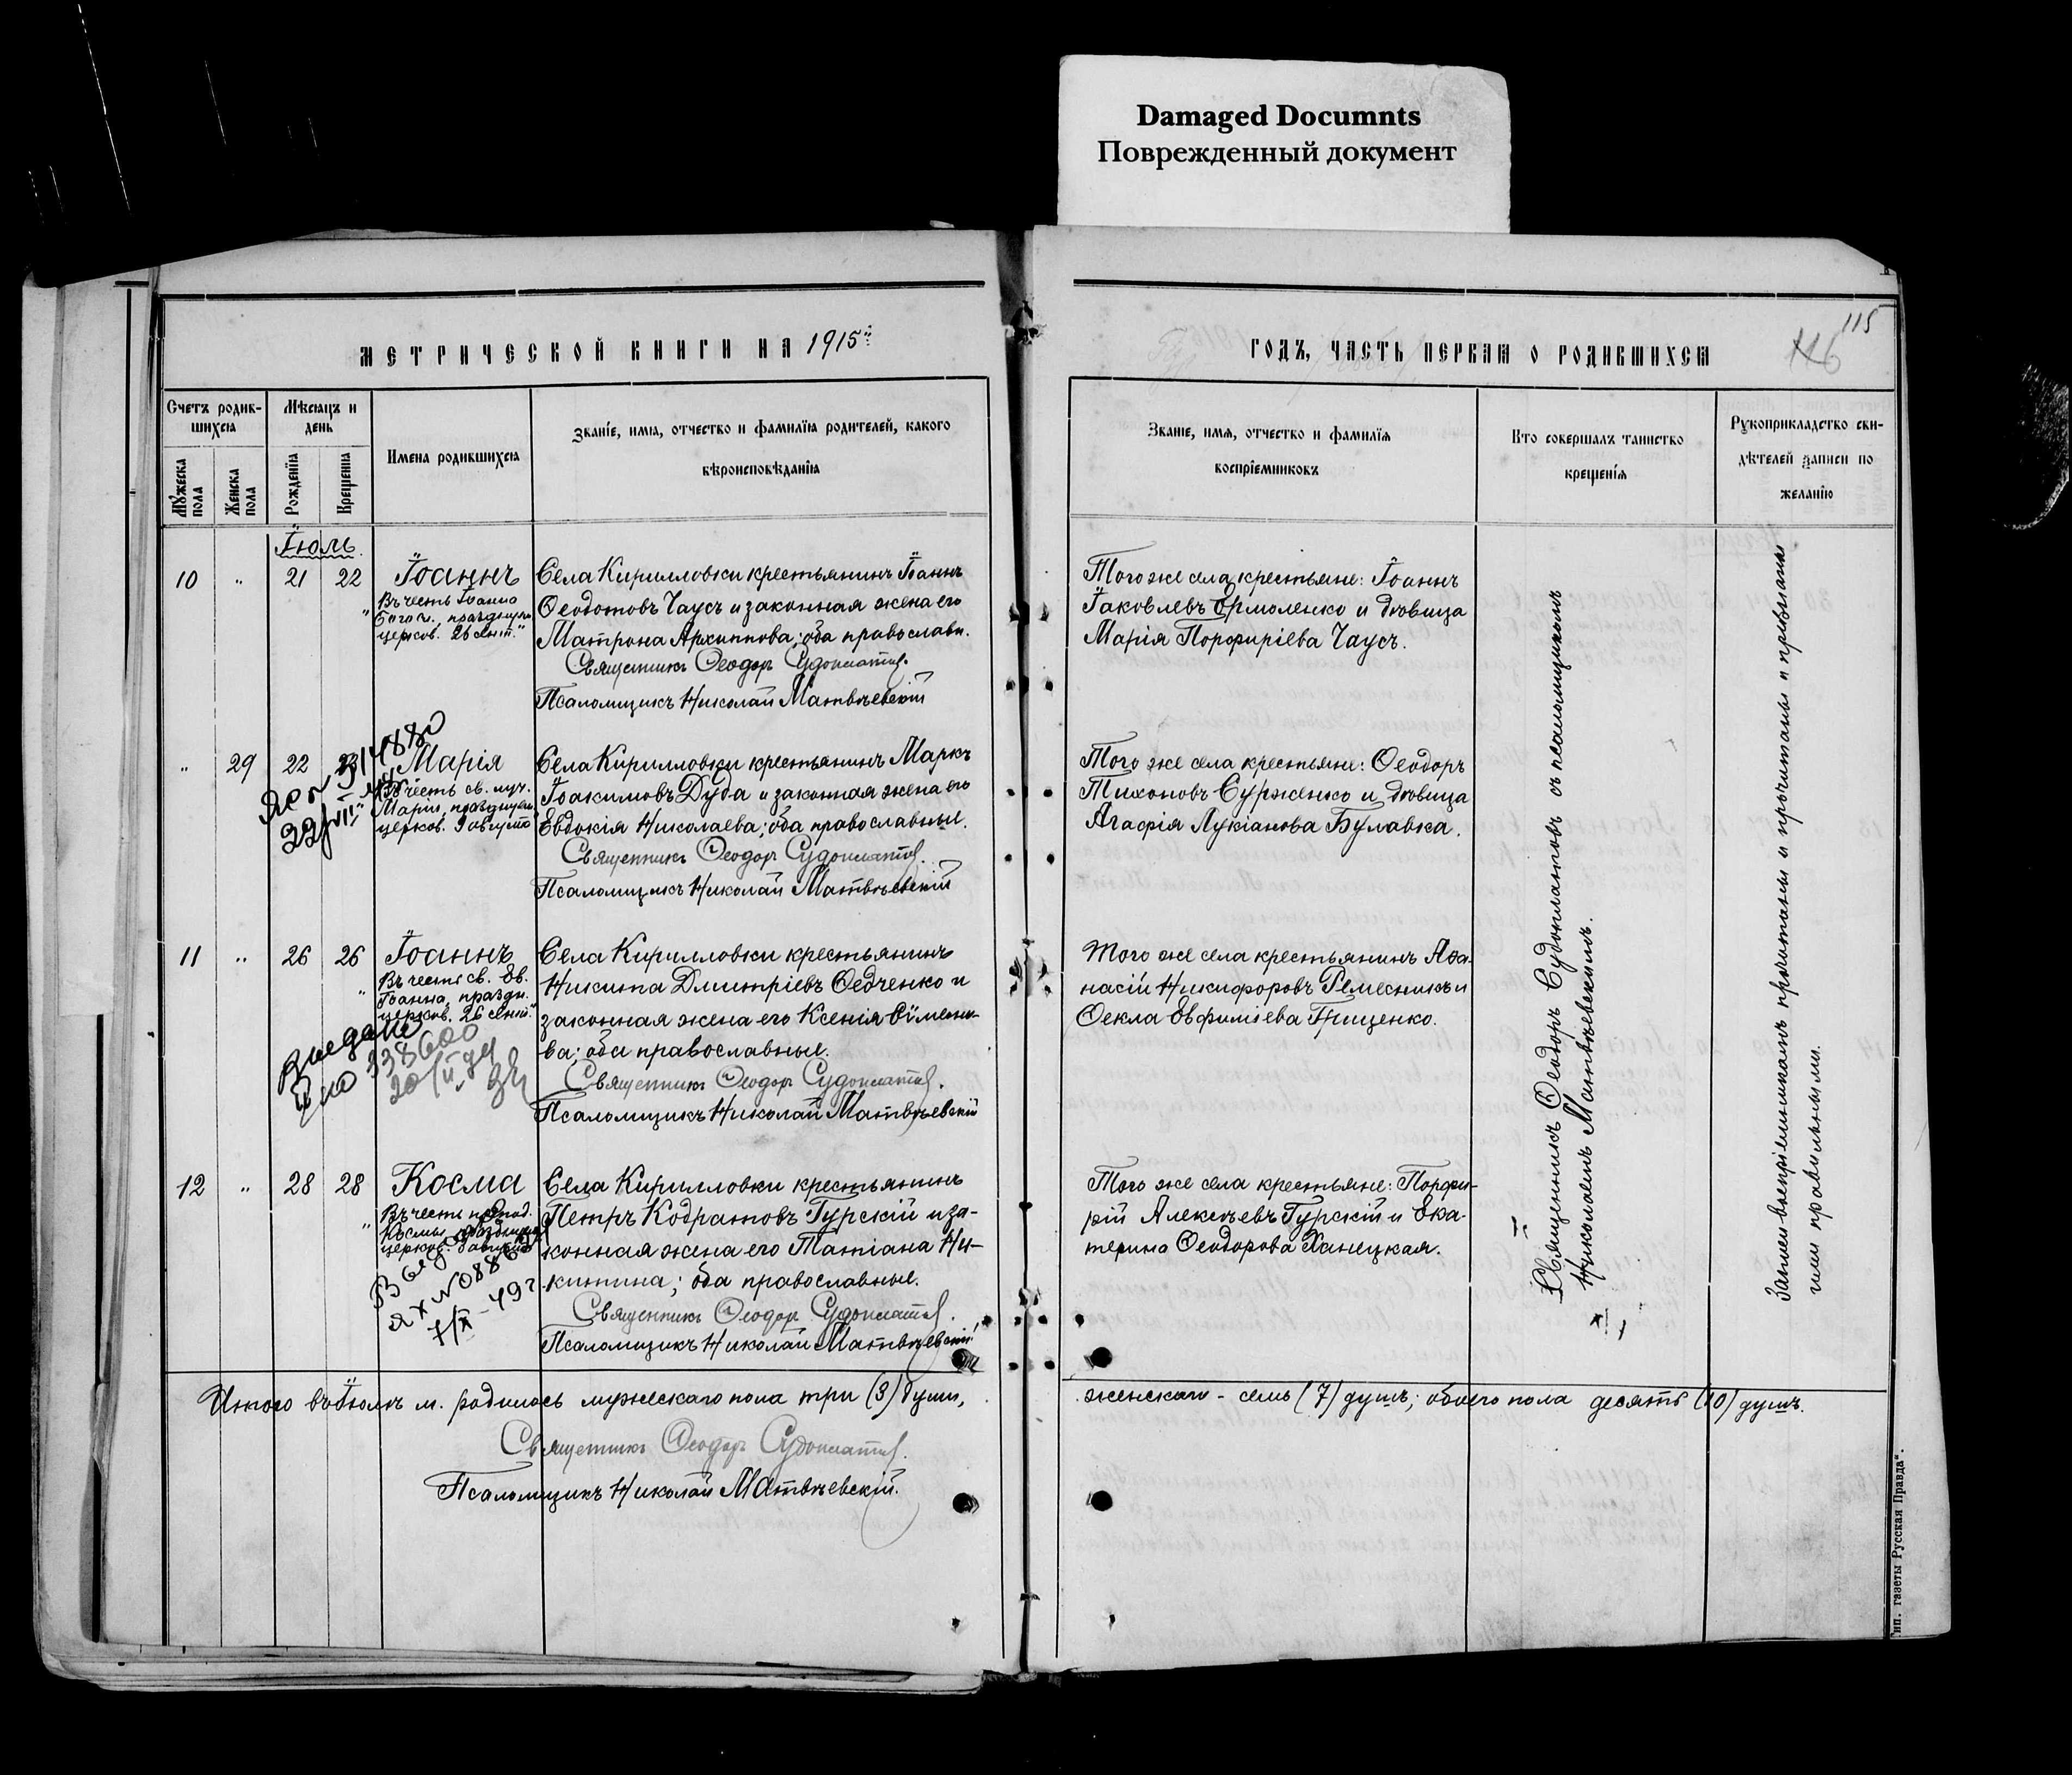 Damaged Documnts
Поврежденный документ
МЕТРИЧЕСКОЙ КНИГИ НА 1915й
ГОДЪ, ЧАСТЬ ПЕРВАЯ О РОДИВШИХСЯ
115
116
Счетъ родив-
шихся
Мѣсяцъ и
день
Имена родившихся
Званїе, имя, отчество и фамилїя родителей, какого
вѣроисповѣданїя
Мужеска
пола
Женска
пола
Рожденїя
Крещенїя
Званїе, имя, отчество и фамилїя
воспрїемниковъ
Кто совершалъ таинство
крещенїя
Рукоприкладство сви-
дѣтелей записи по
желанїю
Іюль.
10 " 21 22 Іоаннъ
Въ честь Іоанна
Богосл., празднуем.
церков. 26 сент."
Села Кирилловки крестьянинъ Іоаннъ
Ѳеодотовъ Чаусъ и законная жена его
Матрона Архиппова; оба православн.
Священникъ Ѳеодоръ Судоплатовъ.
Псаломщикъ Николай Матвѣевскій
Того же села крестьяне: Іоаннъ
Іаковлевъ Ермоленко и дѣвица
Марія Порфиріева Чаусъ.
" 29 22 23 Марія
Въ честь св. муч.
Маріи, празднуем.
церков. 9 августа"
Села Кирилловки крестьянинъ Маркъ
Іоакимовъ Дуда и законная жена его
Евдокія Николаева; оба православные.
Священникъ Ѳеодоръ Судоплатовъ.
Псаломщикъ Николай Матвѣевскій
Того же села крестьяне: Ѳеодоръ
Тихоновъ Сурженко и дѣвица
Агафія Лукіанова Булавка.
11 " 26 26 Іоаннъ
Въ честь св. Ев.
Іоанна, праздн.
церков. 26 сент."
Выдано
338600
Села Кирилловки крестьянинъ
Никита Димитріевъ Ѳедченко и
законная жена его Ксенія Еѵмено-
ва; оба православные.
Священникъ Ѳеодоръ Судоплатовъ.
Псаломщикъ Николай Матвѣевскій
Того же села крестьянинъ Аѳа-
насій Никифоровъ Ремесникъ и
Ѳекла Евфиміева Грищенко.
12 " 28 28 Косма
Въ честь препод.
Космы, празднуем.
церков. 3 августа"
Села Кирилловки крестьянинъ
Петръ Кодратовъ Гурскій и за-
конная жена его Татіана Ни-
китина; оба православные.
Священникъ Ѳеодоръ Судоплатовъ.
Псаломщикъ Николай Матвѣевскій
Того же села крестьяне: Порфи-
рій Алексѣевъ Гурскій и Ека-
терина Ѳеодорова Ханецкая.
Священникъ Ѳеодоръ Судоплатовъ съ псаломщикомъ
Николаемъ Матвѣевскимъ.
Записи воспріемникамъ прочитаны и признаны
ими правильными.
Итого въ Іюлѣ м. родилось мужескаго пола три (3) души,
женскаго - семь (7) душъ; обоего пола десять (10) душъ.
Священникъ Ѳеодоръ Судоплатовъ.
Псаломщикъ Николай Матвѣевскій.
Тип. газеты „Русская Правда".